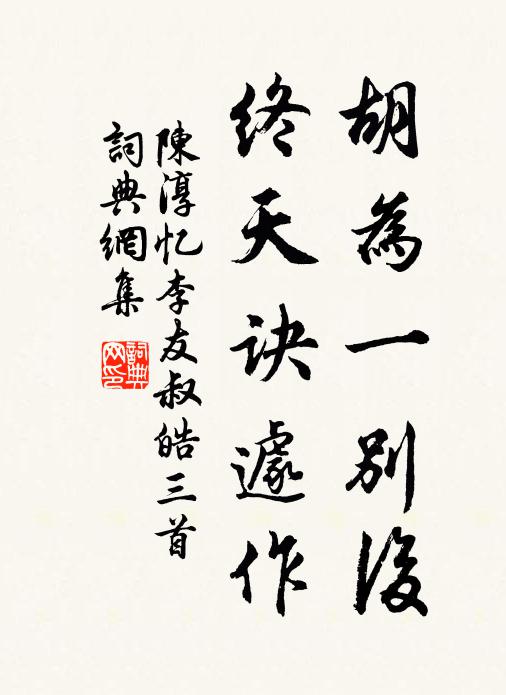 胡為一別後
終天訣遽作
陳淳忆李友叔皓三首
詞典網集
詞典网印